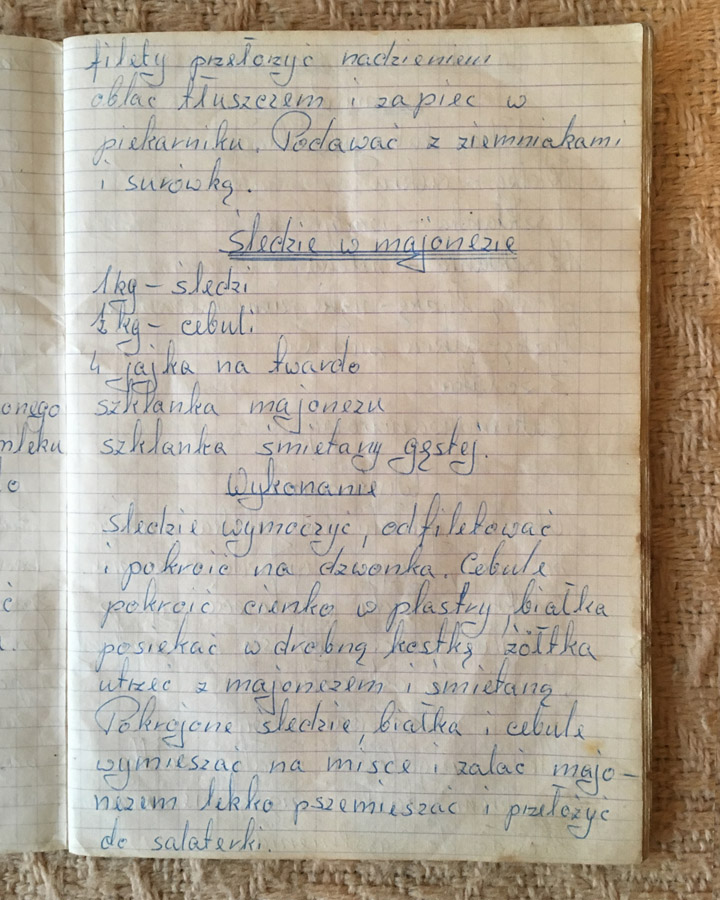 filety przełożyć nadzieniem
oblać tłuszczem i zapiec w
piekarniku. Podawać z ziemniakami
i surówką.
Śledzie w majonezie
1 kg – śledzi
½ kg – cebuli
4 jajka na twardo
szklanka majonezu
szklanka śmietany gęstej.
Wykonanie
Śledzie wymoczyć, odfiletować
i pokroić na dzwonka. Cebule
pokroić cienko w plastry, białka
posiekać w drobną kostkę, żółtka
utrzeć z majonezem i śmietaną
Pokrojone śledzie, białka i cebule
wymieszać na misce i zalać majo-
nezem lekko pszemieszać i przełożyć
do salaterki.
onego
mleku
o
ć